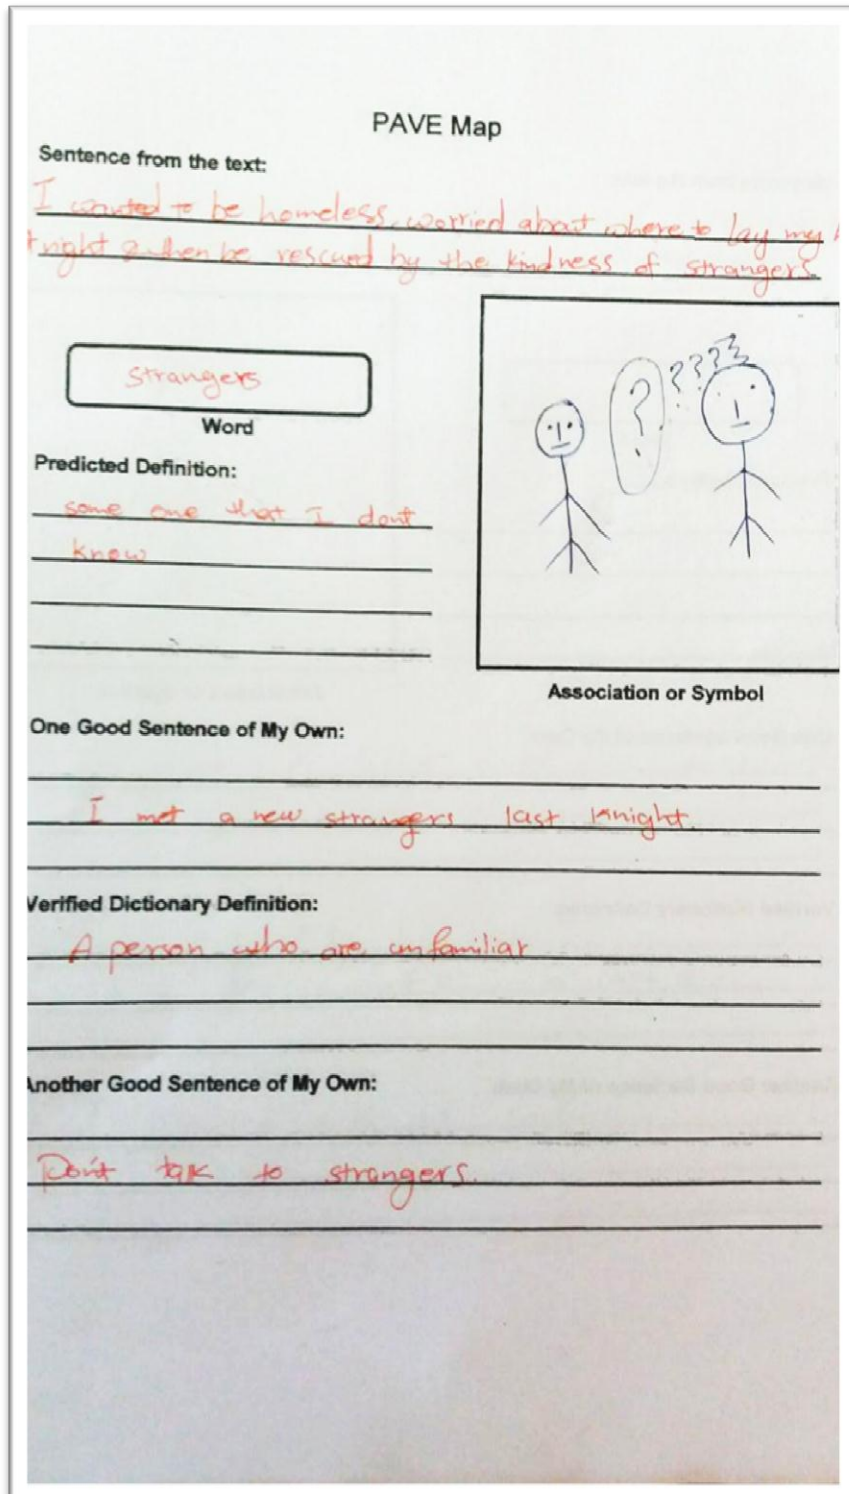 PAVE Map
Sentence from the text:
I wanted to be homeless, worried about where to lay my
right & then be rescued by the kindness of strangers
strangers
Word
Predicted Definition:
some one that I dont
know
? ? ? ? ?
Association or Symbol
One Good Sentence of My Own:
I met a new strangers last knight.
Verified Dictionary Definition:
A person who are unfamiliar
Another Good Sentence of My Own:
Don't talk to strangers.